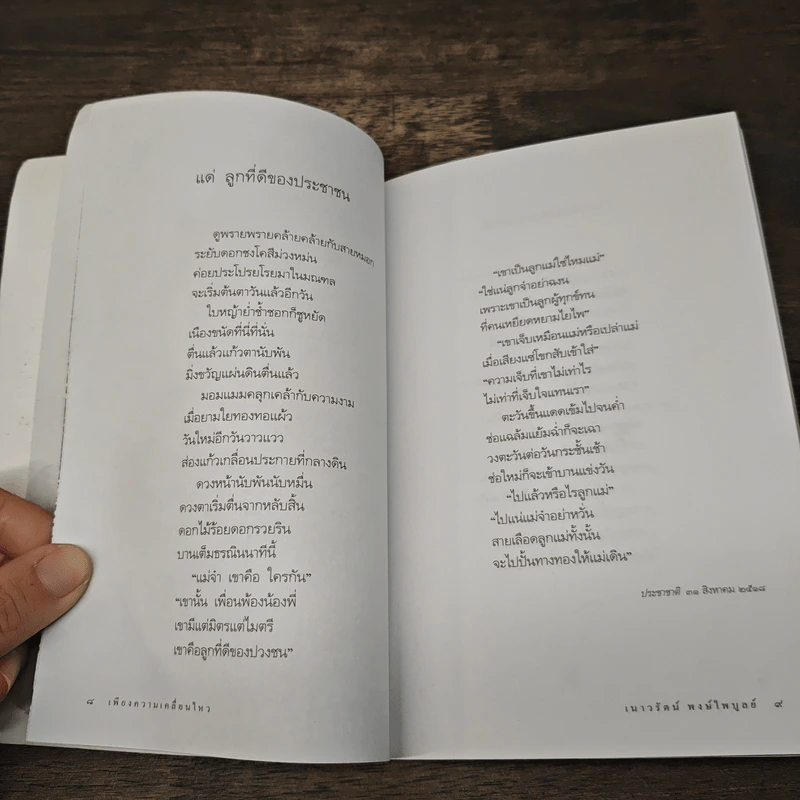 แด่ ลูกที่ดีของประชาชน
ดูพรายพรายคล้ายคล้ายกับสายหมอก
ระยับดอกชงโคสีม่วงหม่น
ค่อยประโปรยโรยมาในมณฑล
จะเริ่มต้นตาวันแล้วอีกวัน
ใบหญ้าย่ำซ้ำชอกก็ชูหยัด
เนืองขนัดที่นี่ที่นั่น
ตื่นแล้วแก้วตานับพัน
มิ่งขวัญแผ่นดินตื่นแล้ว
มอมแมมคลุกเคล้ากับความงาม
เมื่อยามใยทองทอแผ้ว
วันใหม่อีกวันวาวแวว
ส่องแก้วเกลื่อนประกายที่กลางดิน
ดวงหน้านับพันนับหมื่น
ดวงตาเริ่มตื่นจากหลับสิ้น
ดอกไม้ร้อยดอกรวยริน
บานเต็มธรณินนาทีนี้
“แม่จ๋า เขาคือ ใครกัน”
“เขานั้น เพื่อนพ้องน้องพี่
เขามีแต่มิตรแต่ไมตรี
เขาคือลูกที่ดีของปวงชน”
๘ เพียงความเคลื่อนไหว
“เขาเป็นลูกแม่ใช่ไหมแม่”
“ใช่แน่ลูกจ๋าอย่าฉงน
เพราะเขาเป็นลูกผู้ทุกข์ทน
ที่คนเหยียดหยามไยไพ”
“เขาเจ็บเหมือนแม่หรือเปล่าแม่
เมื่อเสียงแซ่โขกสับเข้าใส่”
“ความเจ็บที่เขาไม่เท่าไร
ไม่เท่าที่เจ็บใจแทนเรา”
ตะวันขึ้นแดดเข้มไปจนค่ำ
ช่อแฉล้มแย้มฉ่ำก็จะเฉา
วงตะวันต่อวันกระชั้นเช้า
ช่อใหม่ก็จะเข้าบานแข่งวัน
“ไปแล้วหรือไรลูกแม่”
“ไปแน่แม่จ๋าอย่าหวั่น
สายเลือดลูกแม่ทั้งนั้น
จะไปปั้นทางทองให้แม่เดิน”
ประชาชาติ ๓๑ สิงหาคม ๒๕๑๘
เนาวรัตน์ พงษ์ไพบูลย์ ๙